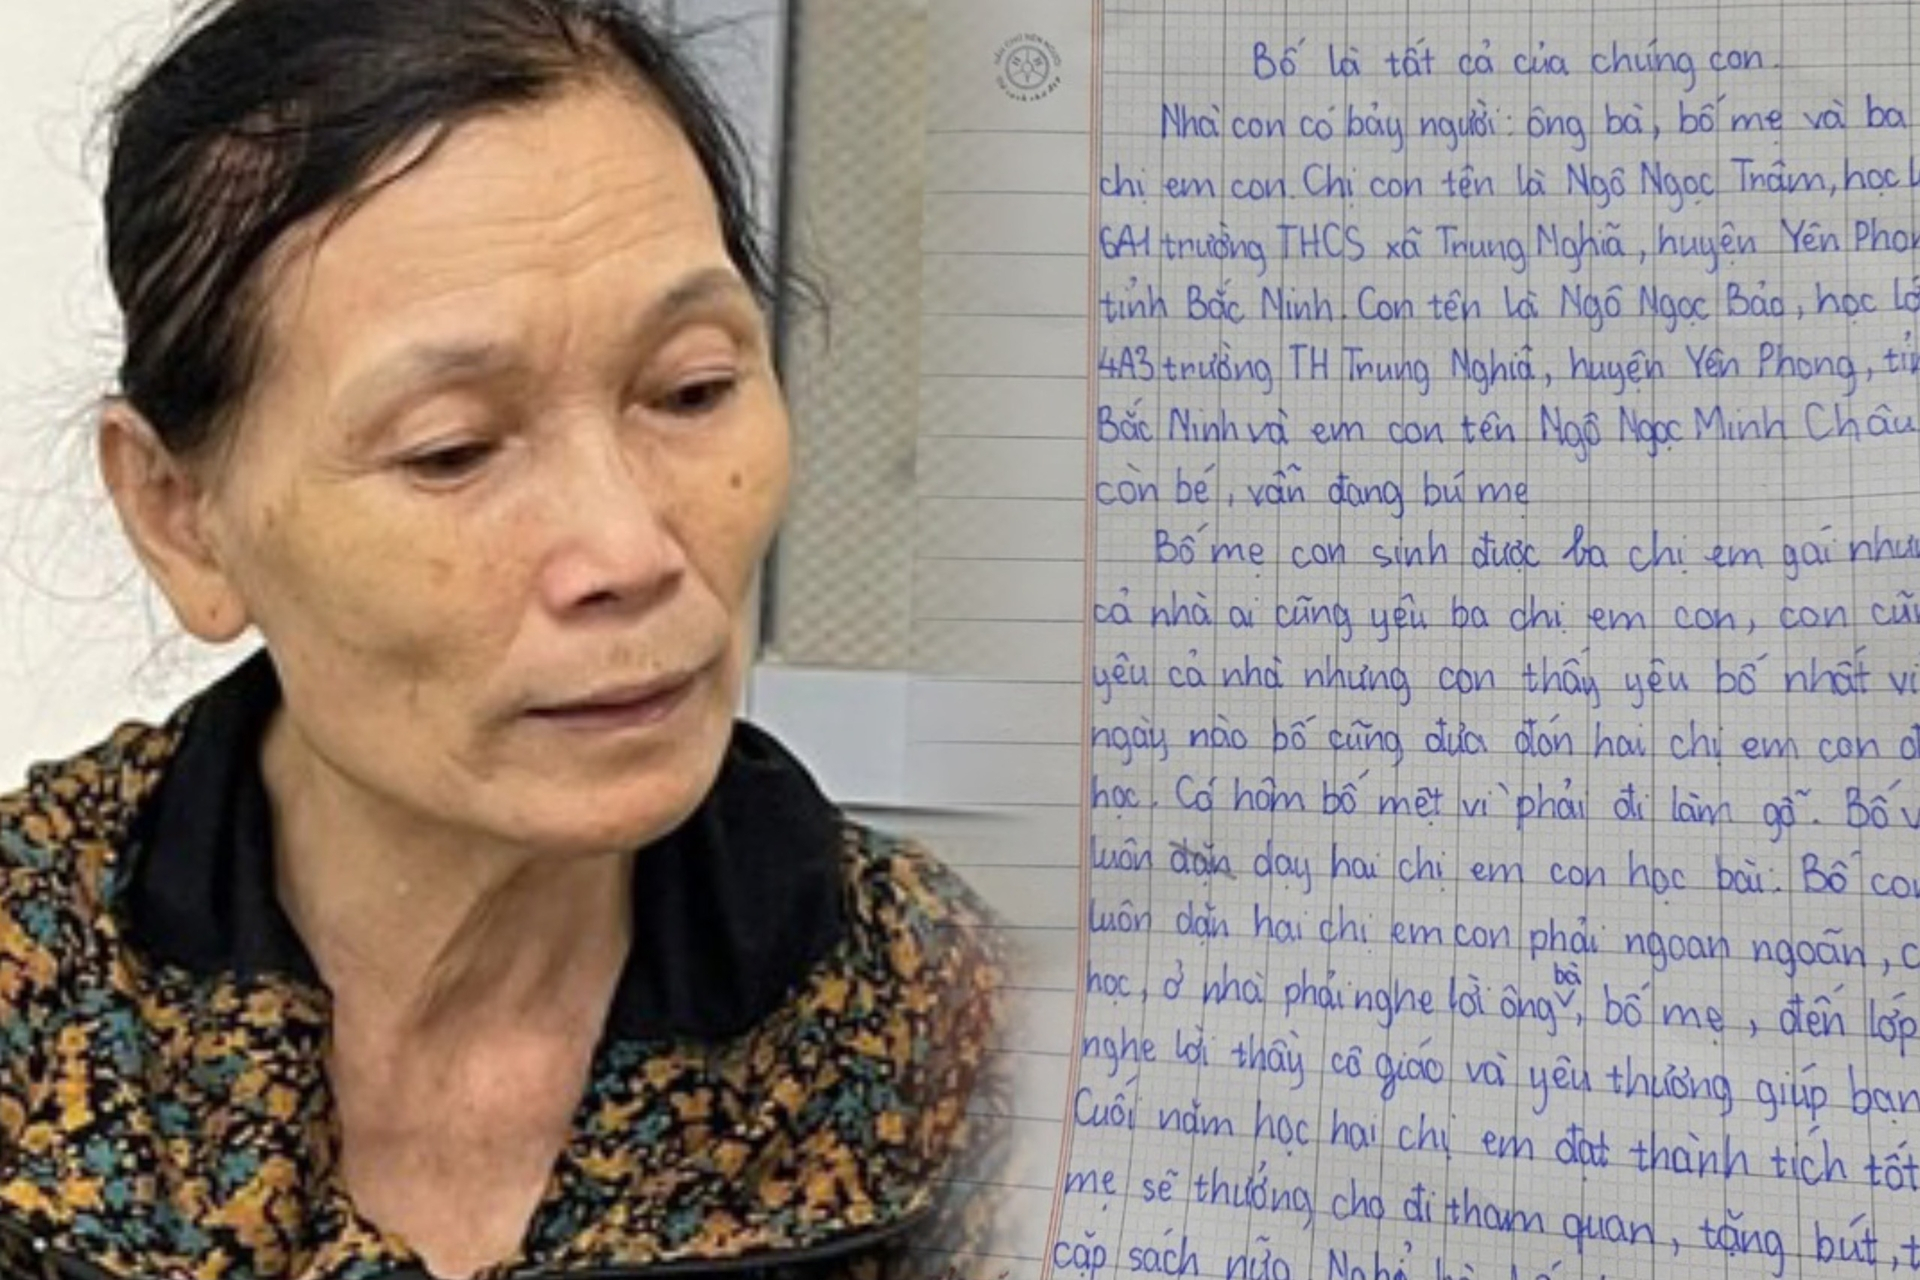 Bố là tất cả của chúng con.
Nhà con có bảy người: ông bà, bố mẹ và ba
chị em con. Chị con tên là Ngô Ngọc Trâm, học
6A1 trường THCS xã Trung Nghĩã, huyện Yên
tỉnh Bắc Ninh. Con tên là Ngô Ngọc Bảo, học
4A3 trường TH Trung Nghĩã, huyện Yên Phong,
Bắc Ninh và em con tên Ngô Ngọc Minh Châu
còn bé, vẫn đang bú mẹ
Bố mẹ con sinh được ba chị em gái
cả nhà ai cũng yêu ba chị em con, con
yêu cả nhà nhưng con thấy yêu bố nhất vì
ngày nào bố cũng đưa đón hai chị em con
học. Có hôm bố mệt vì phải đi làm gỗ. Bố
luôn dạy hai chị em con học bài. Bố
luôn dặn hai chị em con phải ngoan ngoãn,
học, ở nhà phải nghe lời ông bà, bố mẹ, đến lớp
nghe lời thầy cô giáo và yêu thương giúp bạn
Cuối năm học hai chị em đạt thành tích tốt
mẹ sẽ thưởng cho đi tham quan, tặng bút,
cặp sách nữa.